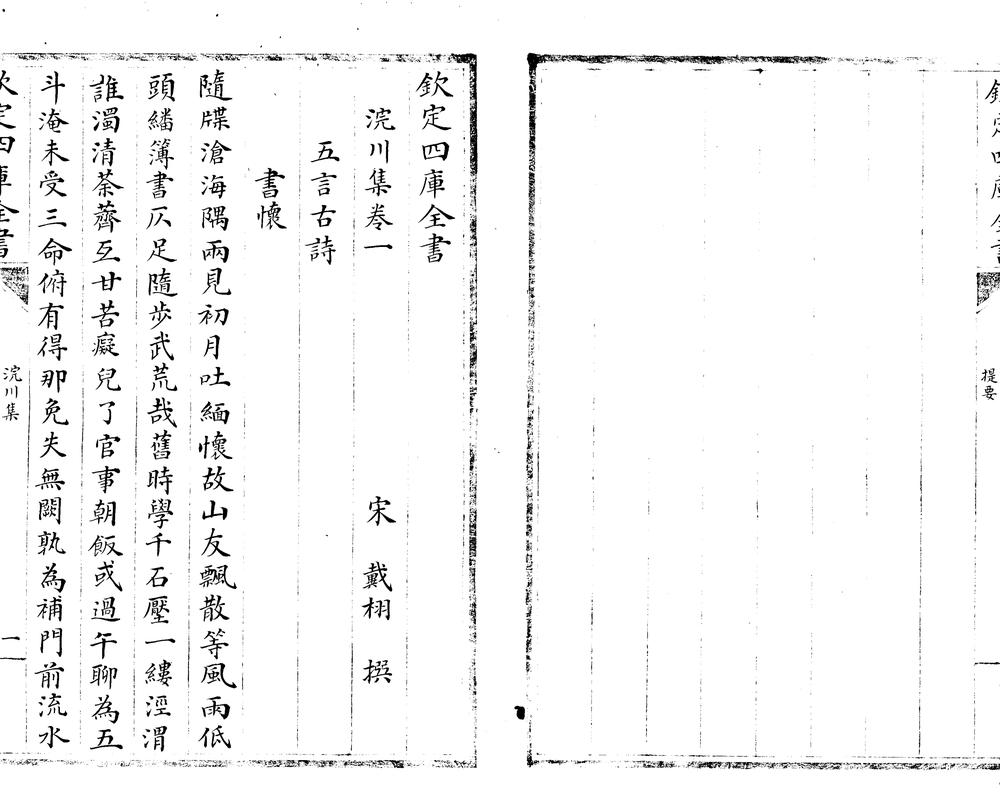 欽定四庫全書
提要
欽定四庫全書
浣川集卷一
宋 戴栩 撰
五言古詩
書懷
隨牒滄海隅兩見初月吐緬懷故山友飄散等風雨低
頭繙簿書仄足隨步武荒哉舊時學千石壓一縷涇渭
誰濁清荼薺互甘苦癡兒了官事朝飯或過午聊為五
斗淹未受三命俯有得那免失無闕孰為補門前流水
欽定四庫全書
浣川集
一